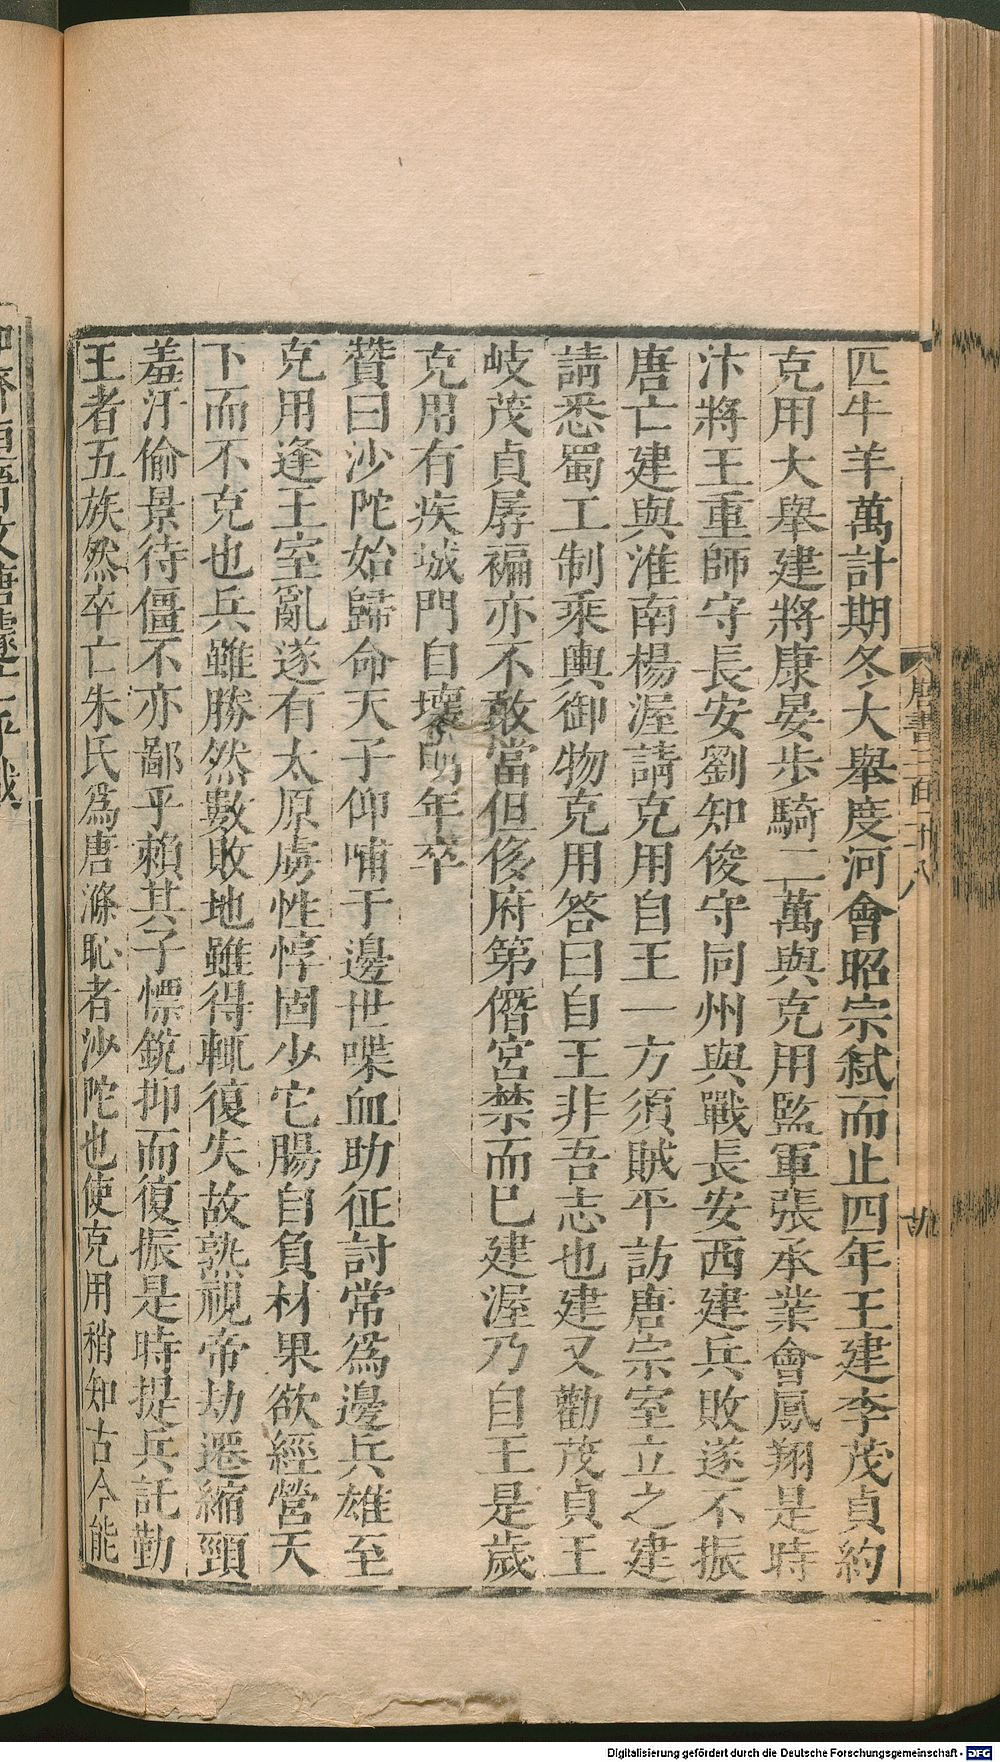 匹牛羊萬計期冬大舉度河會昭宗弑而止四年王建李茂貞約
克用大舉建將康晏步騎二萬與克用監軍張承業會鳳翔是時
汴將王重師守長安劉知俊守同州與戰長安西建兵敗遂不振
唐亡建與淮南楊渥請克用自王一方須賊平訪唐宗室立之建
請悉蜀工制乘輿御物克用答曰自王非吾志也建又勸茂貞王
岐茂貞孱褊亦不敢當但侈府第僭宮禁而已建渥乃自王是歲
克用有疾城門自壞明年卒
贊曰沙陀始歸命天子仰哺于邊世喋血助征討常爲邊兵雄至
克用逢王室亂遂有太原虜性惇固少它腸自負材果欲經營天
下而不克也兵雖勝然數敗地雖得輒復失故熟視帝劫遷縮頸
羞汗偷景待僵不亦鄙乎賴其子慓銳抑而復振是時提兵託勤
王者五族然卒亡朱氏爲唐滌恥者沙陀也使克用稍知古今能
唐書二百十八
Digitalisierung gefördert durch die Deutsche Forschungsgemeinschaft - DFG